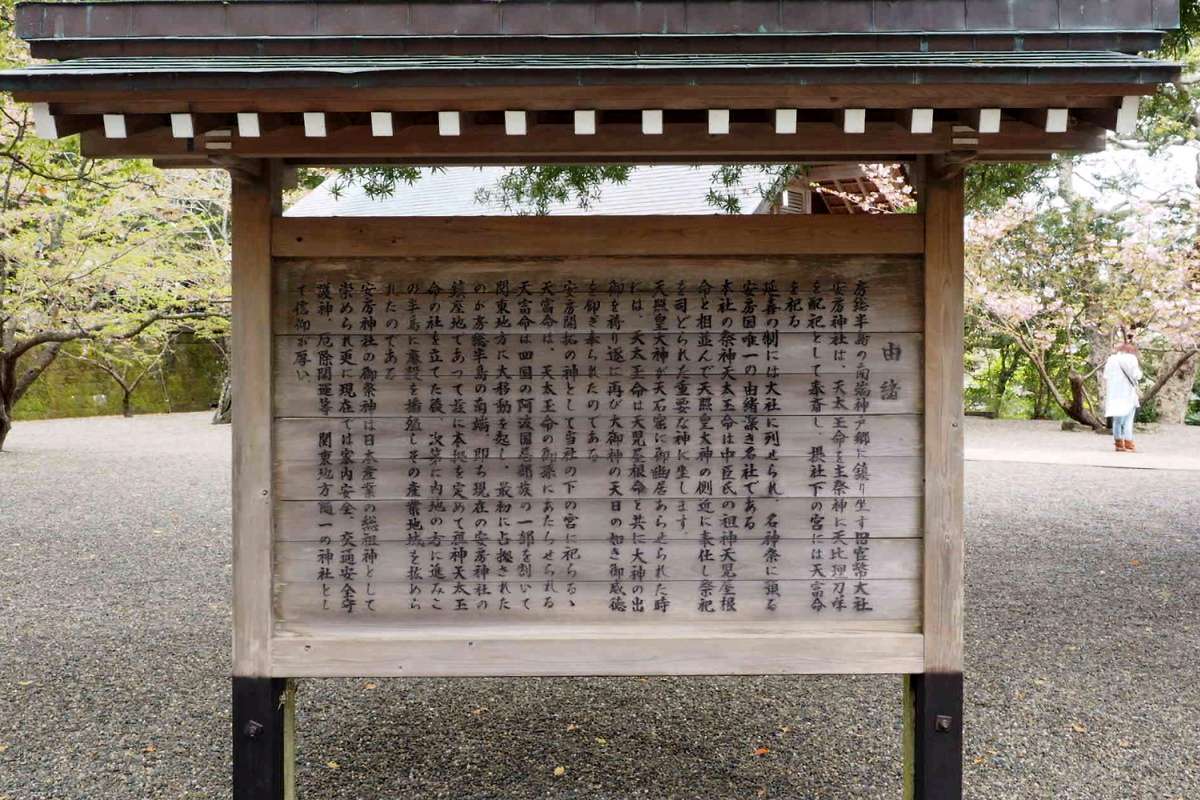 由緒
房総半島の南端神戸郷に鎮り坐す旧官幣大社
安房神社は、天太玉命を主祭神に天比理刀咩
を配祀として奉斎し、摂社下の宮には天富命
を祀る
延喜の制には大社に列せられ、名神祭に預る
安房国唯一の由緒深き名社である
本社の祭神天太玉命は中臣氏の祖神天児屋根
命と相並んで天照皇大神の側近に奉仕し祭祀
を司どられた重要な神に坐します。
天照皇大神が天石窟に御幽居あらせられた時
には、天太玉命は天児屋根命と共に大神の出
御を祷り遂に再び大御神の天日の如き御威徳
を仰ぎ奉られたのである
安房開拓の神として当社の下の宮に祀らるゝ
天富命は、天太玉命の御孫にあたらせられる
天富命は四国の阿波国忌部族の一部を割いて
関東地方に大移動を起し、最初に占拠された
のが房総半島の南端、即ち現在の安房神社の
鎮座地であって茲に本拠を定めて祖神天太玉
命の社を立てた後、次第に内地の方に進みこ
の半島に麻穀を播殖しその産業地域を拡めら
れたのである
安房神社の御祭神は日本産業の総祖神として
崇められ更に現在では室内安全、交通安全守
護神、厄除開運等 関東地方随一の神社とし
て信仰が厚い